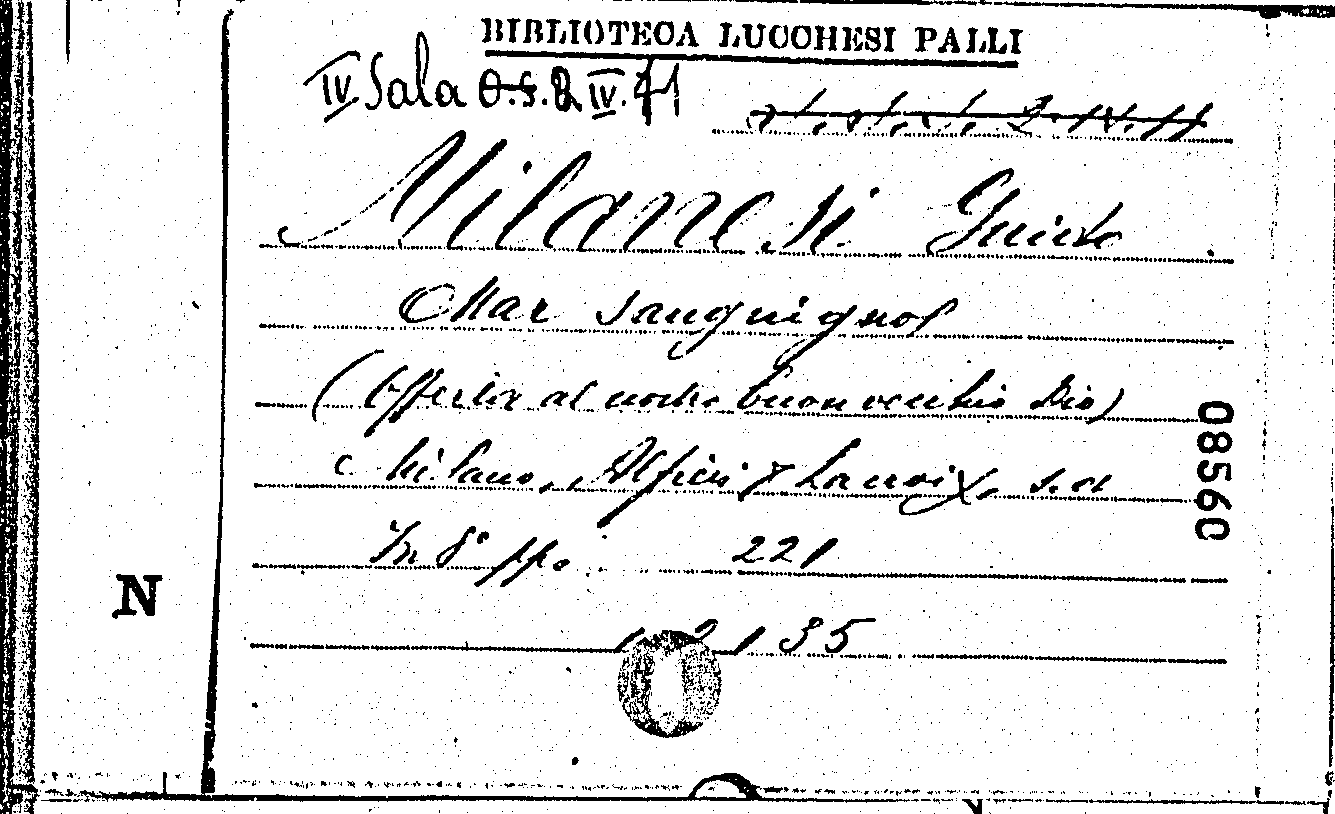 BIBLIOTECA LUCCHESI PALLI
IV Sala O.S.2 IV.41
Milanesi Guido
Mar Sanguigno
(Offerta al nostro buon vecchio Dio)
Milano, Alfieri & Lacroix, s.a
In 8° pp. 221
08560
N